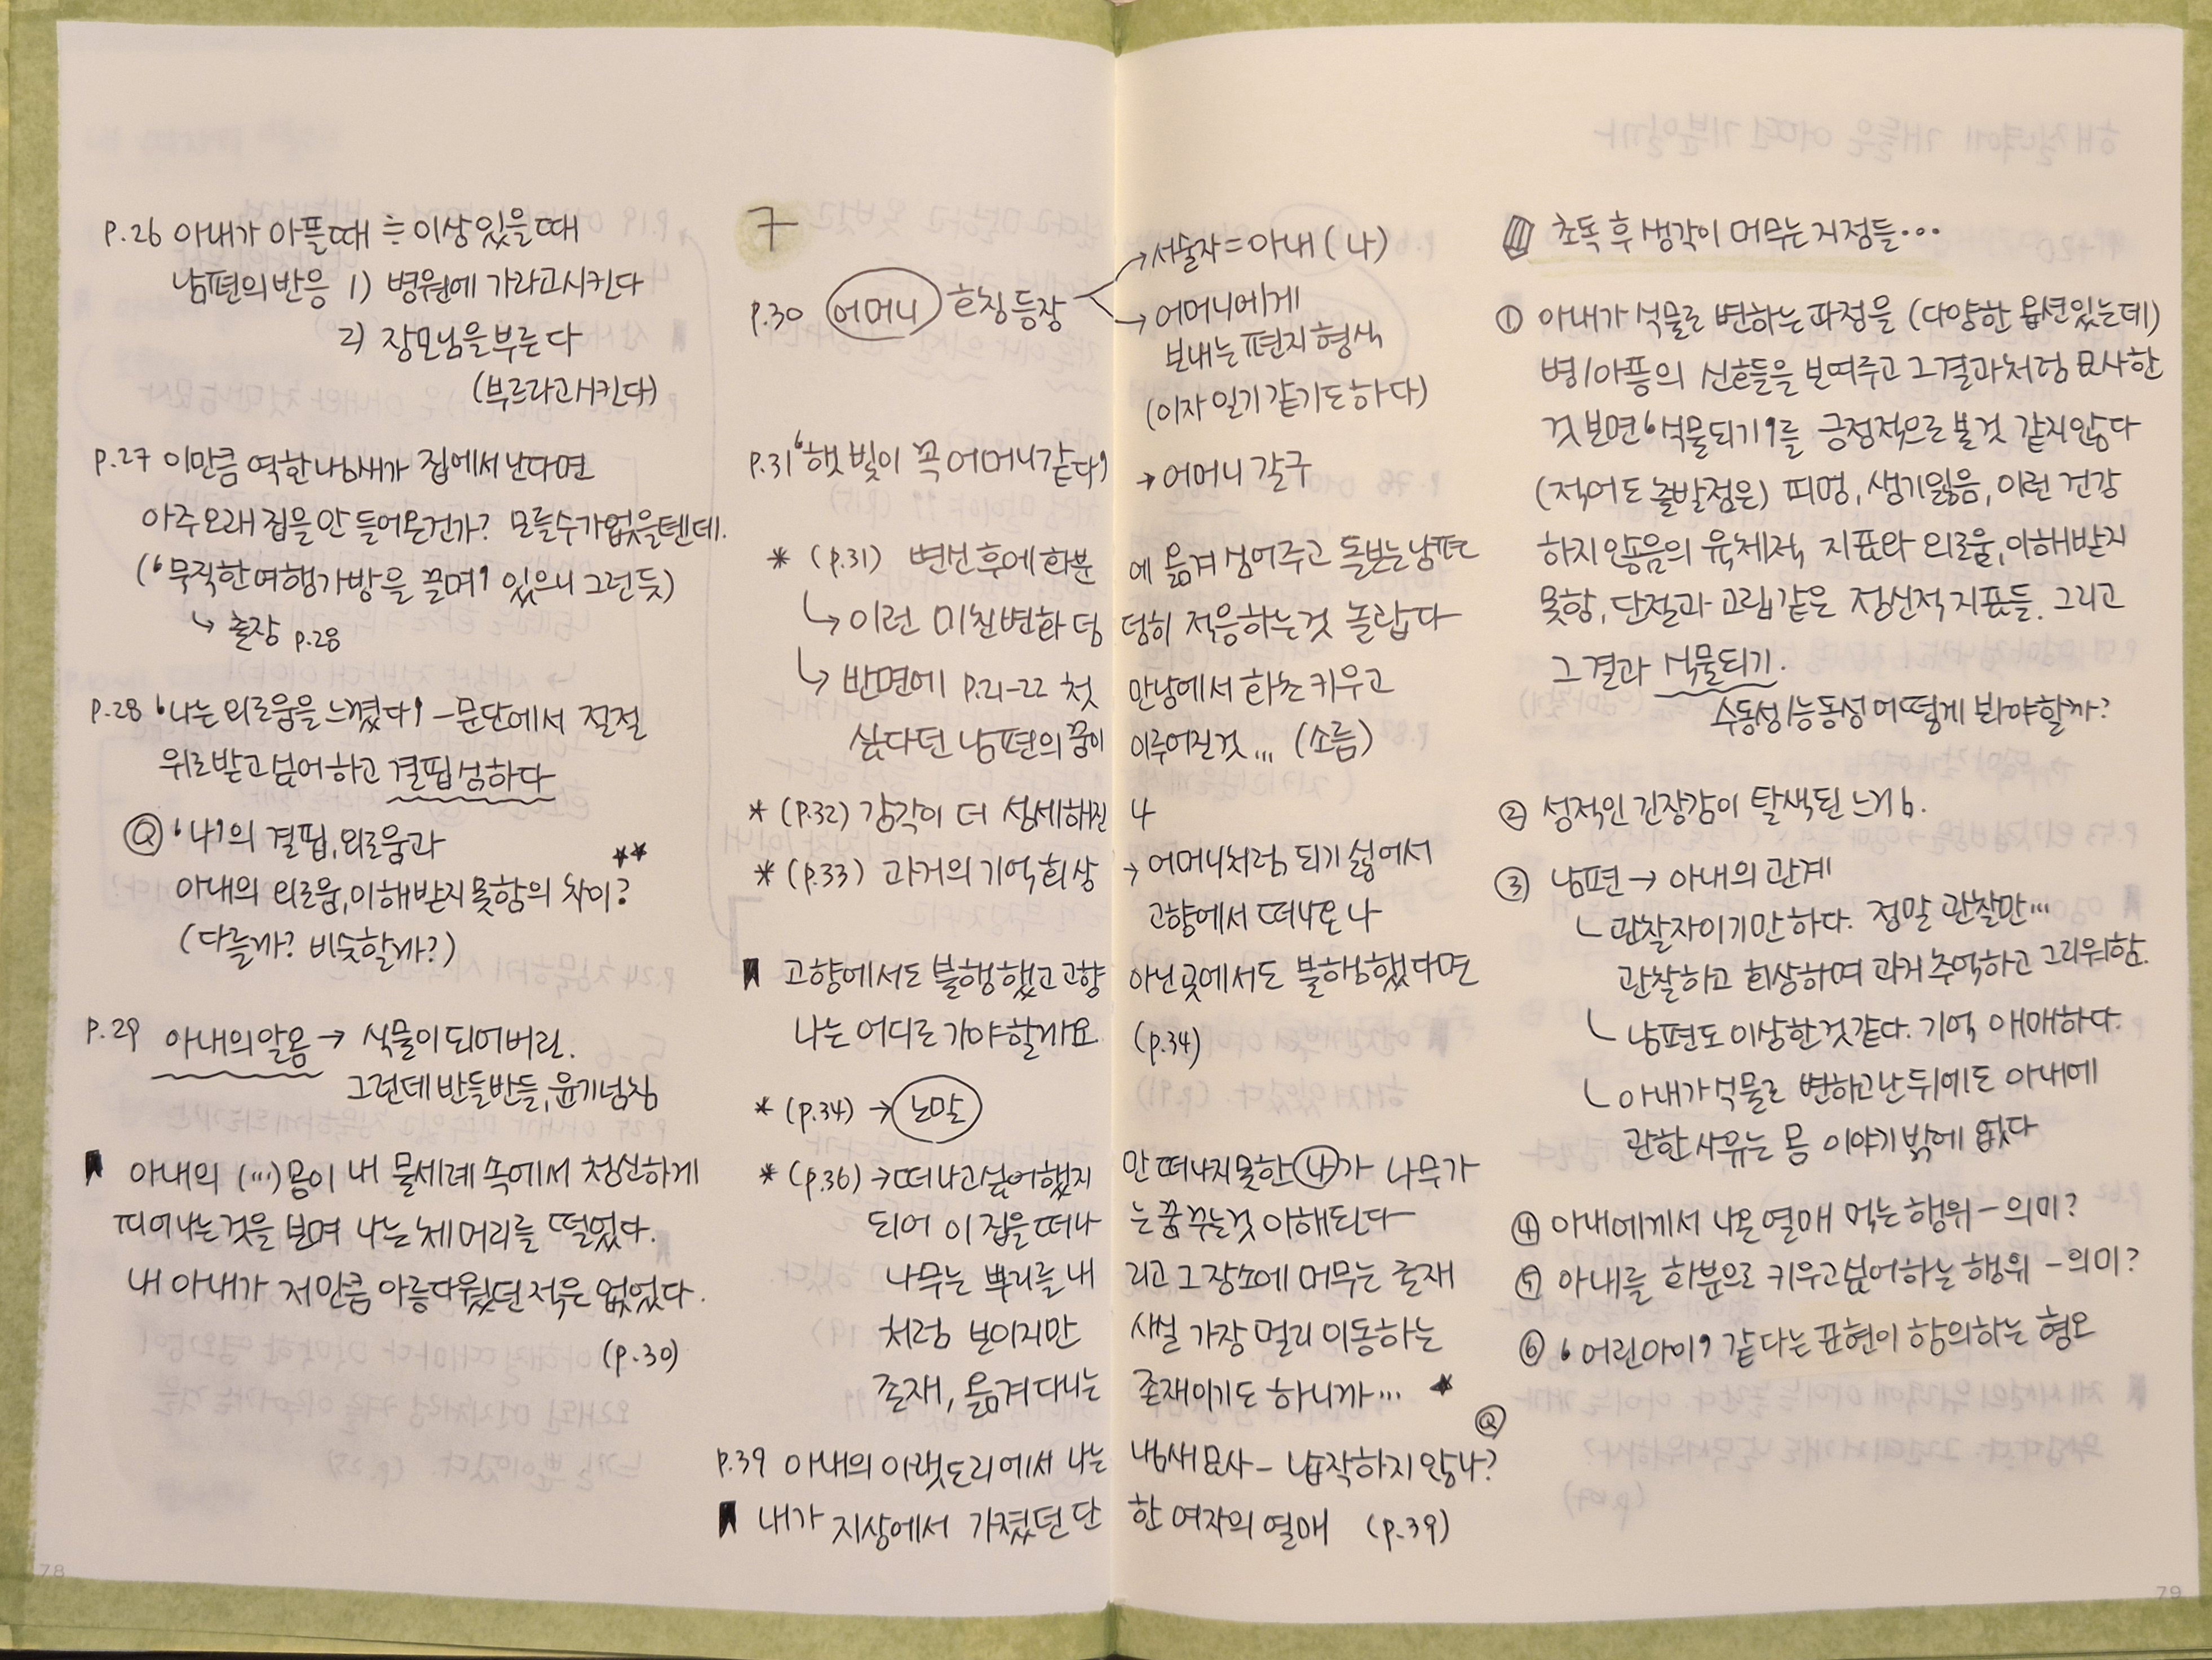 p.26 아내가 아플때 ≒ 이상있을때
남편의 반응 1) 병원에 가라고시킨다
2) 장모님을부른다
(부르라고시킨다)
p.27 이만큼 역한냄새가 집에서 난다면
아주오래 집을 안 들어온건가? 모를수가없을텐데.
('묵직한여행가방을 끌며' 있으니 그런듯)
↳ 출장 p.28
p.28 '나는 외로움을 느꼈다' - 문단에서 절절
위로받고싶어하고 결핍성하다
Ⓠ '나'의 결핍, 외로움과
아내의 외로움, 이해받지못함의 차이? ★★
(다를까? 비슷할까?)
p.29 아내의알몸 → 식물이되어버린.
그런데 반들반들, 윤기넘침
아내의 (…) 몸이 내 물세례 속에서 청신하게
피어나는것을 보며 나는 체머리를 떨었다.
내 아내가 저만큼 아름다웠던적은 없었다.
(p.30)
7
p.30 어머니 호칭등장 → 서술자 = 아내 (나)
→ 어머니에게
보내는 편지형식
(이자 일기같기도하다)
p.31 '햇빛이 꼭 어머니같다' → 어머니 갈구
* (p.31) 변신후에 화분에 옮겨심어주고 돌보는남편
↳ 이런 미친변화 덤덤히 적응하는것 놀랍다
↳ 반면에 p.21-22 첫만남에서 화초 키우고
싶다던 남편의꿈이 이루어진것... (소름)
* (p.32) 감각이 더 섬세해진 나
* (p.33) 과거의기억회상 → 어머니처럼 되기싫어서
고향에서 떠나오나
고향에서도 불행했고 고향 아닌곳에서도 불행했다면
나는어디로가야할까요 (p.34)
* (p.34) → 눈말
* (p.36) → 떠나고싶어했지만 떠나지못한 나가 나무가
되어 이 집을떠나는꿈꾸는것 이해된다
나무는 뿌리를 내리고 그장소에 머무는 존재
처럼 보이지만 사실 가장멀리 이동하는
존재, 옮겨다니는 존재이기도 하니까... ★
Ⓠ
p.39 아내의아랫도리에서 나는 냄새묘사 - 납작하지않나?
내가 지상에서 가졌던단 한 여자의열매 (p.39)
초독 후 생각이 머무는 지점들...
① 아내가 식물로 변하는과정을 (다양한 옵션있는데)
병/아픔의 신호들을 보여주고 그결과처럼 묘사한
것 보면 '식물되기'를 긍정적으로볼것 같지않다
(적어도 출발점은) 피멍, 생기잃음, 이런 건강
하지않음의 육체적 지표와 외로움, 이해받지
못함, 단절과 고립같은 정신적지표들. 그리고
그결과 식물되기.
수동성/능동성 어떻게봐야할까?
② 성적인긴장감이 탈색된느낌.
③ 남편 → 아내의관계
ㄴ관찰자이기만하다. 정말관찰만...
관찰하고 회상하며 과거추억하고 그리워함.
ㄴ 남편도이상한것같다. 기억 애매하다.
ㄴ 아내가식물로 변하고난뒤에도 아내에
관한사유는 몸 이야기밖에 없다
④ 아내에게서 나온열매 먹는행위 - 의미?
⑤ 아내를 화분으로 키우고싶어하는 행위 - 의미?
⑥ '어린아이' 같다는표현이 함의하는 혐오
78
79